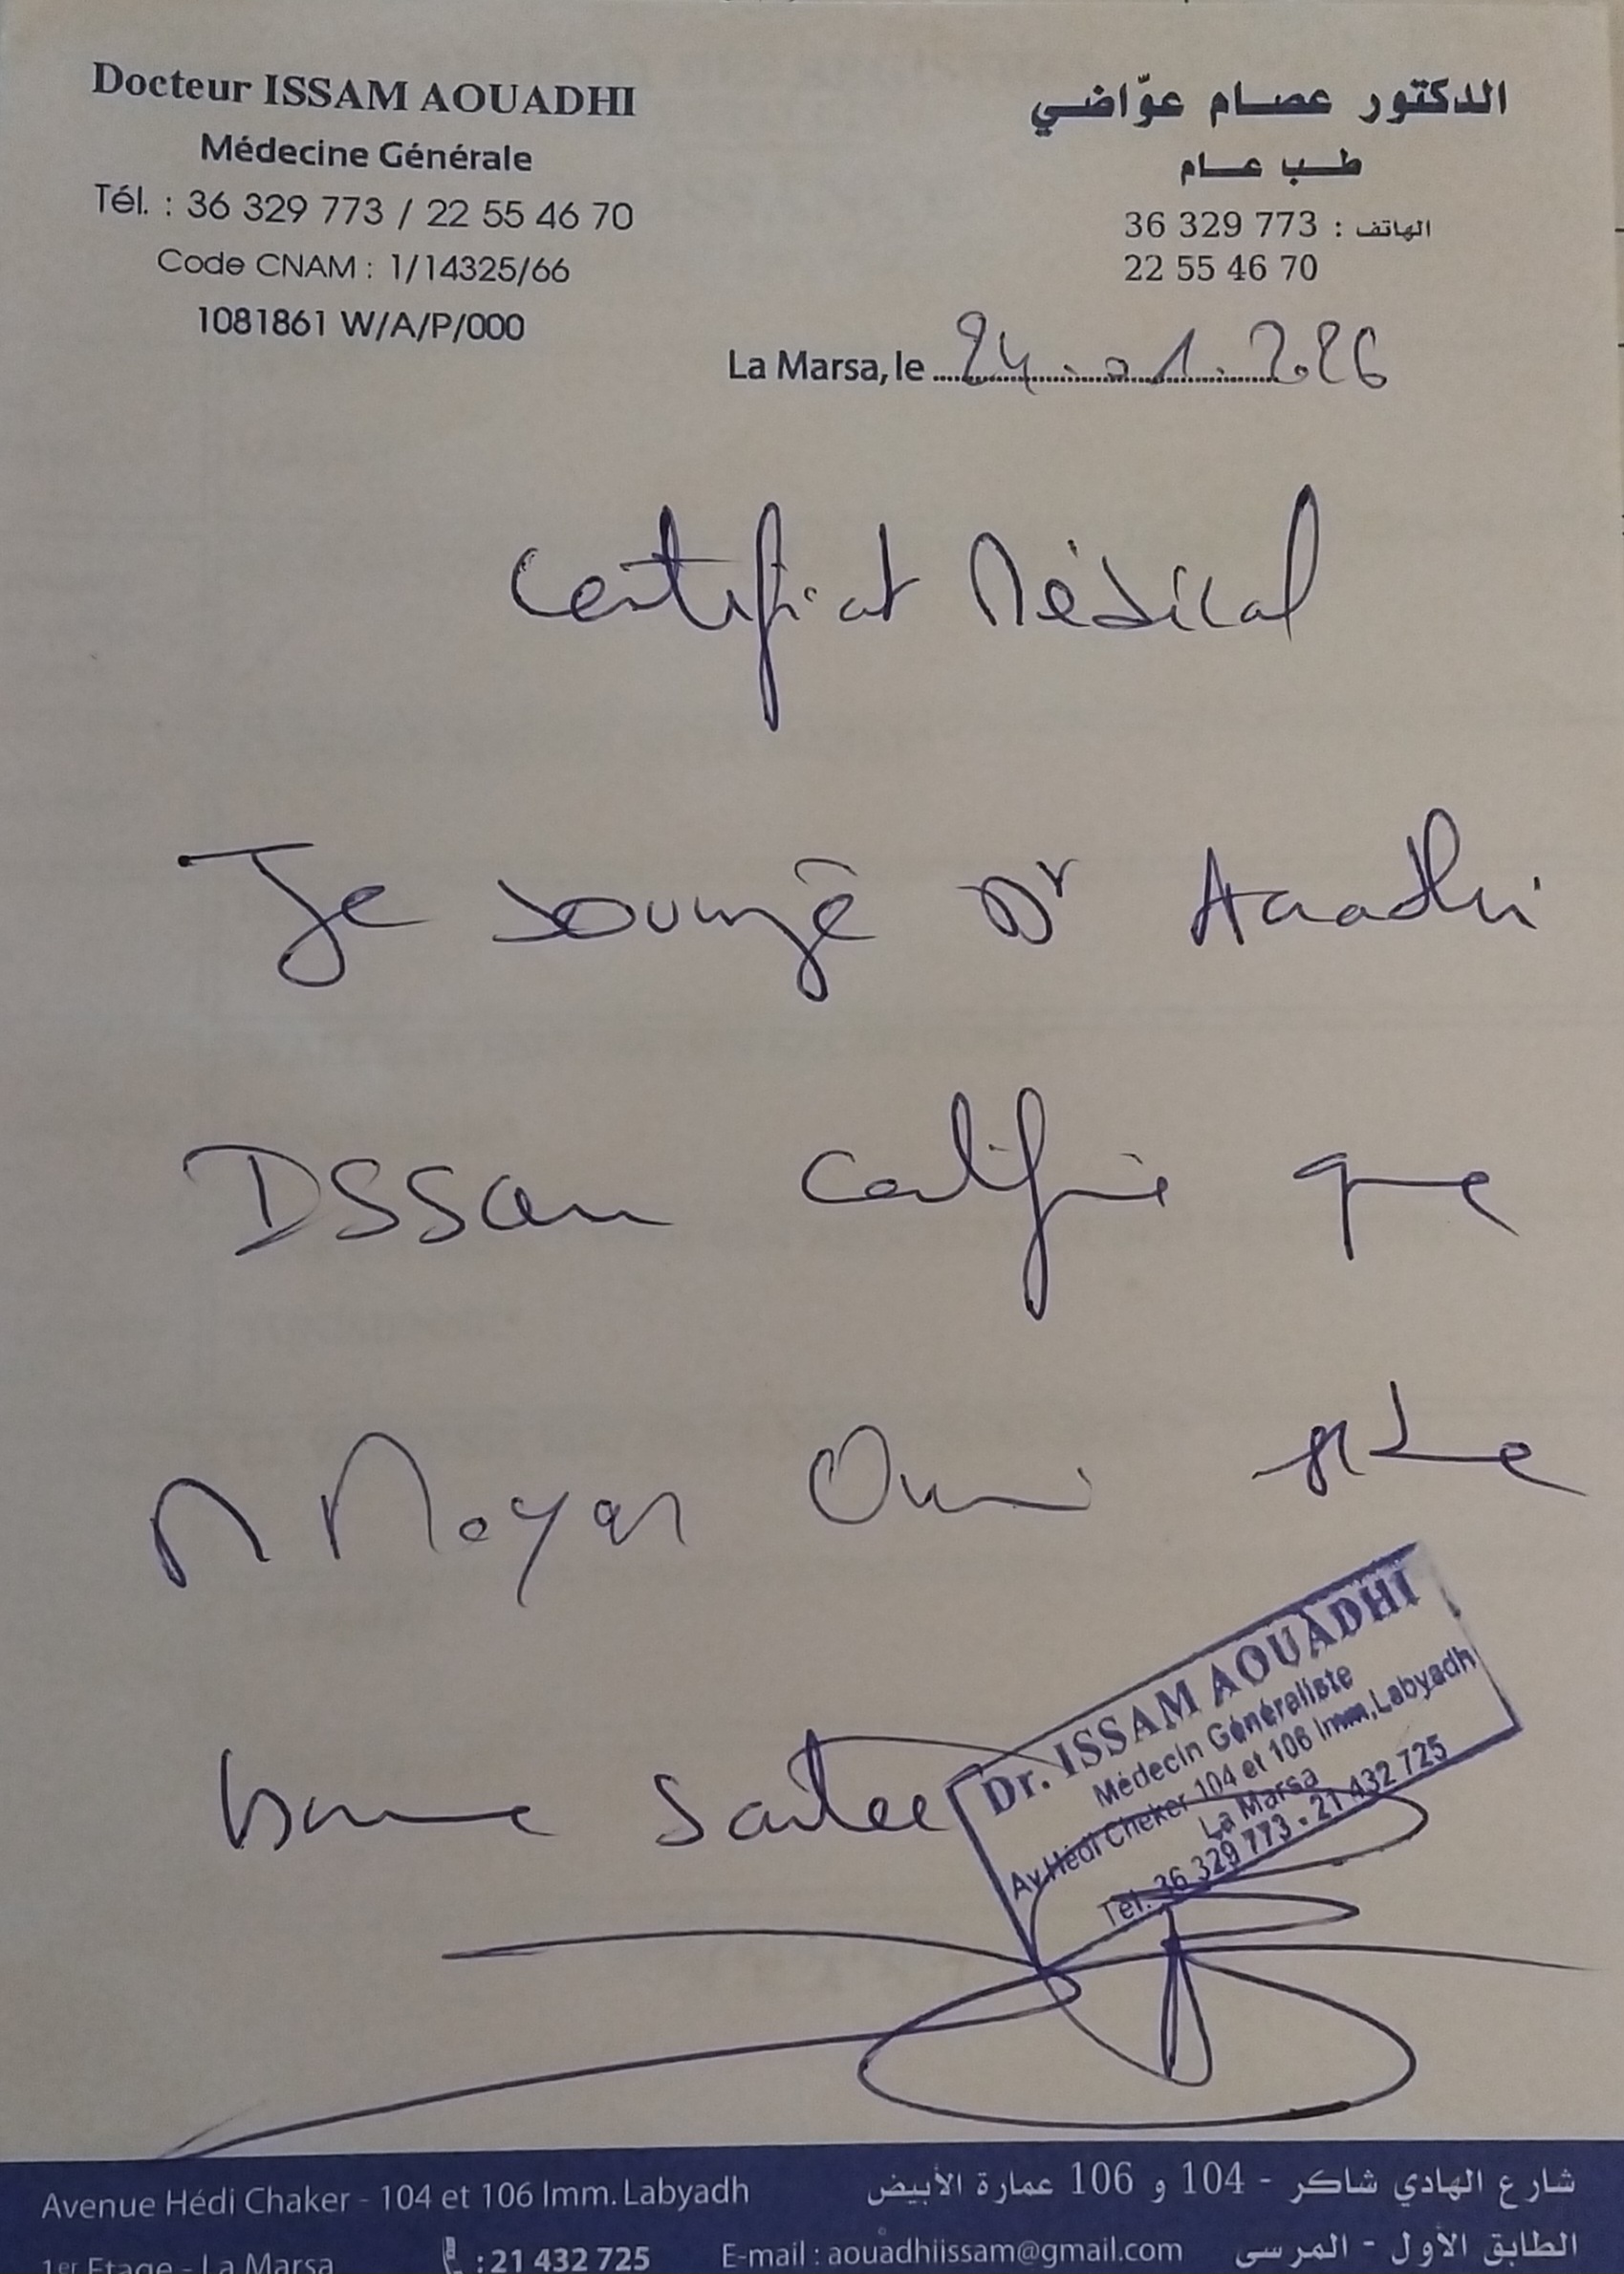 Docteur ISSAM AOUADHI
Médecine Générale
Tél. : 36 329 773 / 22 55 46 70
Code CNAM : 1/14325/66
1081861 W/A/P/000
الدكتور عصام عوّاضي
طب عام
الهاتف : 36 329 773
22 55 46 70
La Marsa, le 24.01.2026
Certificat Médical
Je soussigné Dr Aouadhi
Issam certifie que
Mayar est de
bonne santee
Dr. ISSAM AOUADHI
Médecin Généraliste
Av. Hédi Cheker 104 et 106 Imm, Labyadh
La Marsa
Tél: 36 329 773 - 21 432 725
Avenue Hédi Chaker - 104 et 106 Imm. Labyadh
شارع الهادي شاكر - 104 و 106 عمارة الأبيض
1er Etage - La Marsa : 21 432 725 E-mail : aouadhiissam@gmail.com
الطابق الأول - المرسى